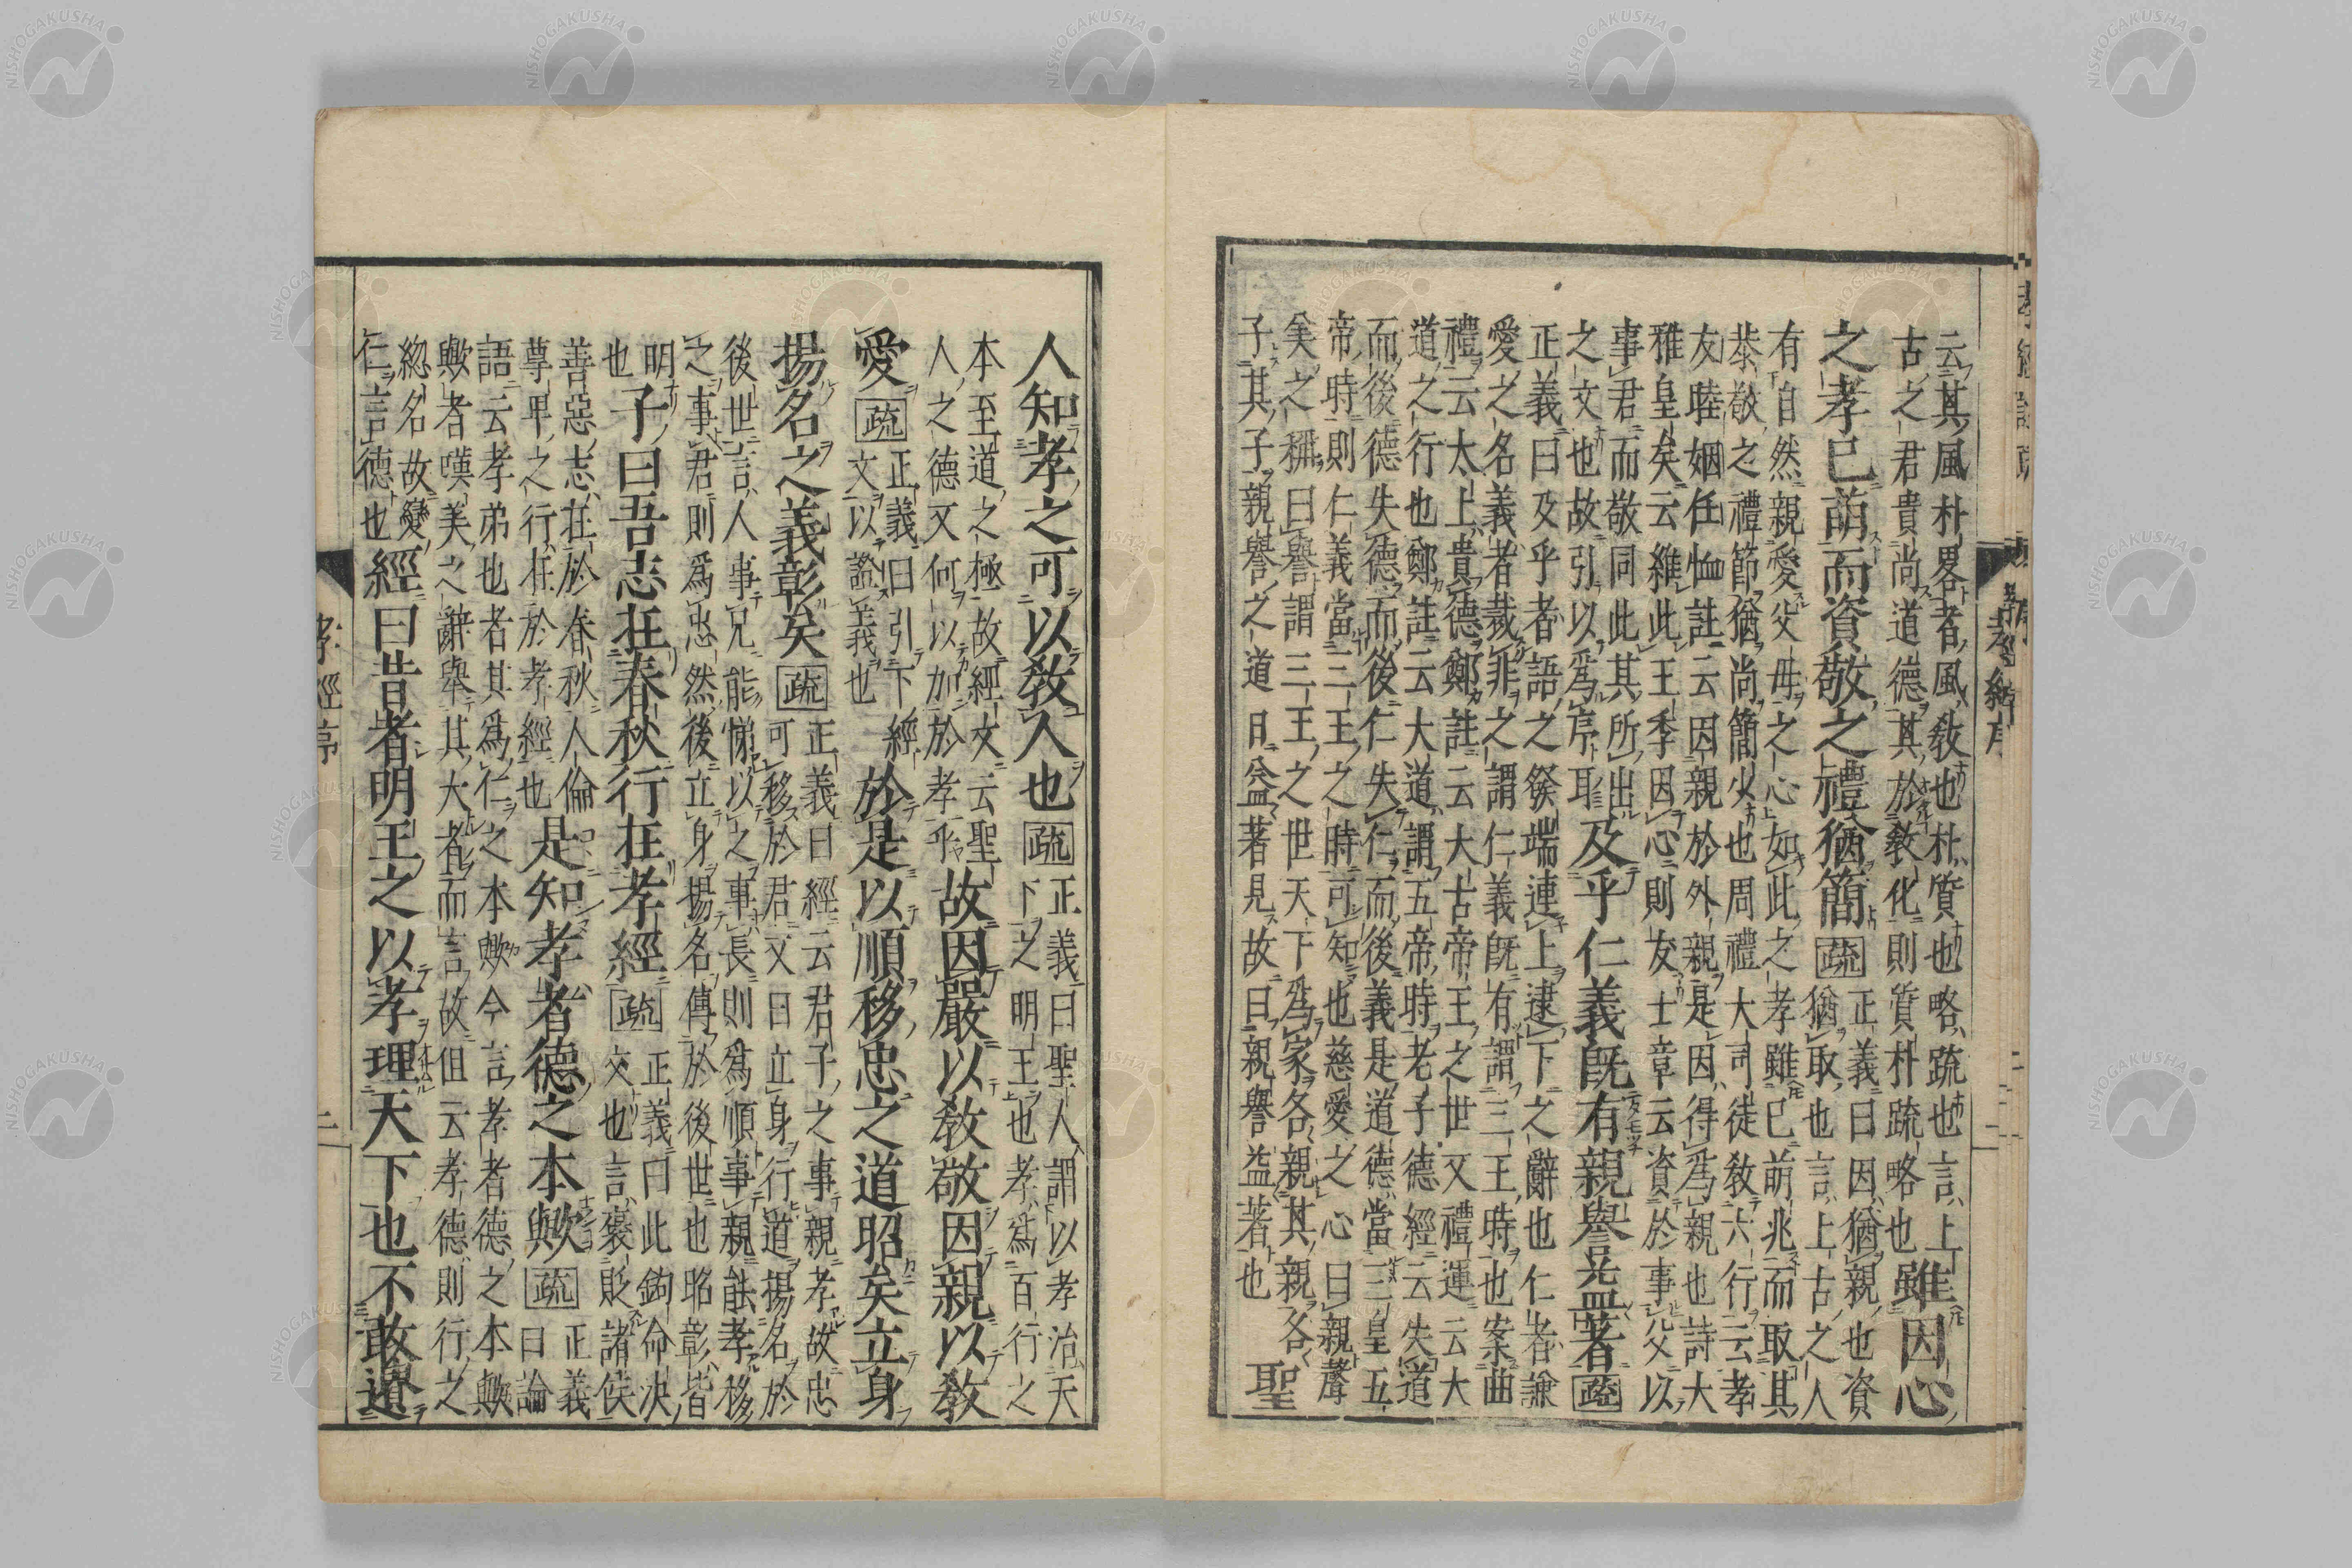 云其風朴畧者風敎也朴質也略疏也言上
古之君貴尚道德其於敎化則質朴疏略也雖因心
之孝已萌而資敬之禮猶簡疏正義曰因猶親也資
猶取也言上古之人
有自然親愛父母之心如此之孝雖已萌兆而取其
恭敬之禮節猶尚簡少也周禮大司徒敎六行云孝
友睦姻任恤註云因親於外親是因得爲親也詩大
雅皇矣云維此王季因心則友士章云資於事父以
事君而敬同此其所出
之文也故引以爲序耶及乎仁義旣有親譽益著疏
正義曰及乎者語之發端連上逮下之辭也仁者謙
愛之名義者裁非之謂仁義旣有謂三王時也案曲
禮云太上貴德鄭註云大古帝王之世又禮運云大
道之行也鄭註云大道謂五帝時老子德經云失道
而後德失德而後仁失仁而後義是道德當三皇五
帝時則仁義當三王之時可知也慈愛之心曰親聲
矣之稱曰譽謂三王之世天下爲家各親其親各
子其子親譽之道日益著見故曰親譽益著也聖
孝經序
人知孝之可以敎人也疏正義曰聖人謂以孝治天
下之明王也孝爲百行之
本至道之極故經文云聖
人之德又何以加於孝乎故因嚴以敎敬因親以敎
愛疏正義曰引下經
文以證義也於是以順移忠之道昭矣立身
揚名之義彰矣疏正義曰經云君子之事親孝故忠
可移於君又曰立身行道揚名於
後世言人事兄能悌以之事長則爲順事親能孝移
之事君則爲忠然後立身揚名傳於後世也昭彰皆
明也子曰吾志在春秋行在孝經疏正義曰此鉤命决
文也言褒貶諸侯
善惡志在於春秋人倫
尊卑之行在於孝經也是知孝者德之本歟疏正義
曰論
語云孝弟也者其爲仁之本歟今言孝者德之本歟
歟者嘆美之辭舉其大者而言故但云孝德則行之
緫名故變
仁言德也經曰昔者明王之以孝理天下也不敢遺
孝經序
NISHOGAKUSHA